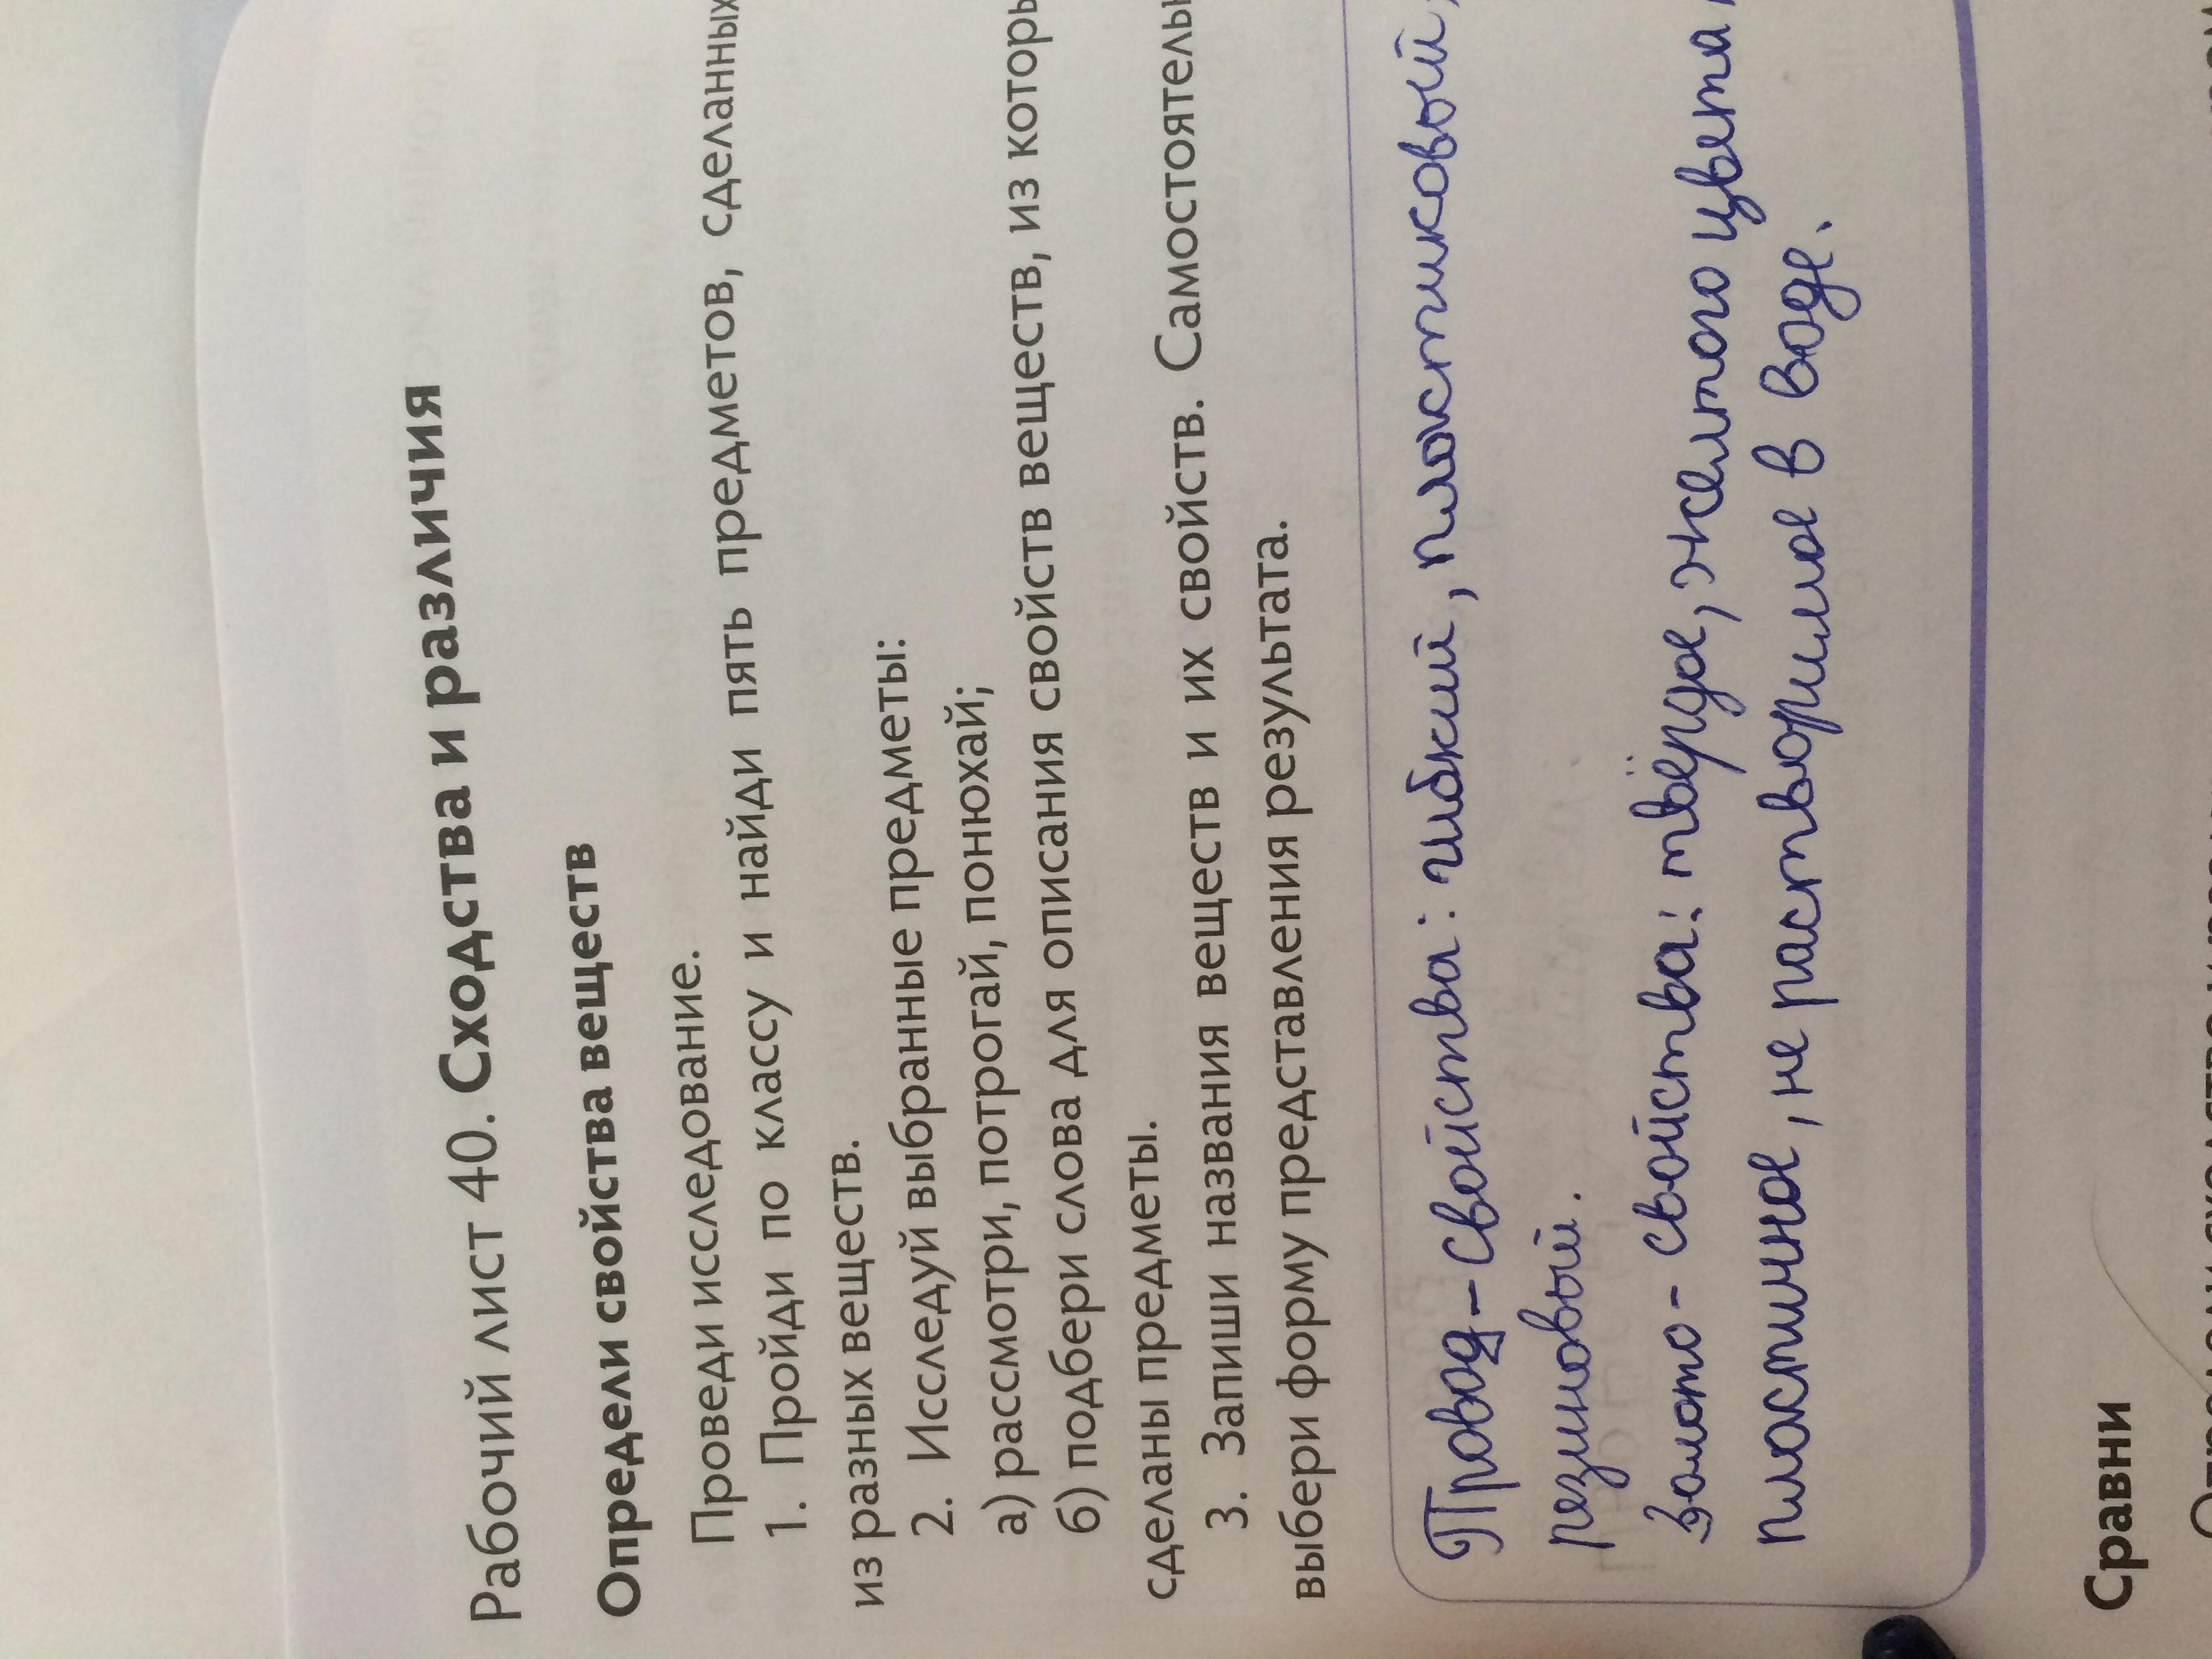 Рабочий лист 40. Сходства и различия
Определи свойства веществ
Проведи исследование.
1. Пройди по классу и найди пять предметов, сделанных
из разных веществ.
2. Исследуй выбранные предметы:
а) рассмотри, потрогай, понюхай;
б) подбери слова для описания свойств веществ, из которы
сделаны предметы.
3. Запиши названия веществ и их свойств. Самостоятельн
выбери форму представления результата.
Провод-свойства: гибкий, пластиковый,
резиновый.
Золото - свойства: твёрдое, желтого цвета,
пластичное, не растворимое в воде.
Сравни